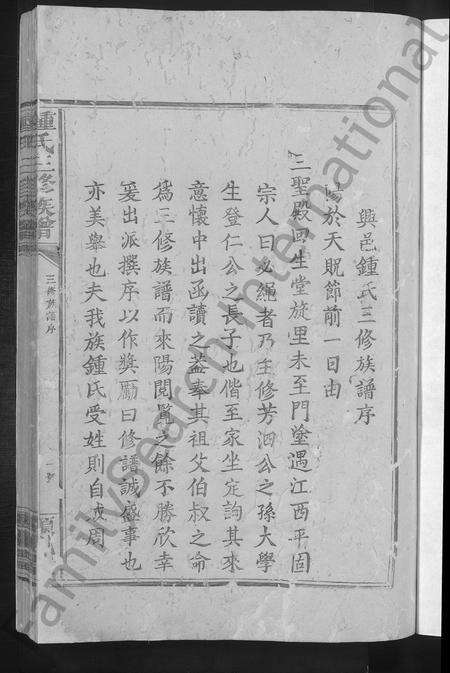 興邑鍾氏三修族譜序
陽於天貺節前一日由
三聖殿回生堂旋里未至門塗遇江西平固
宗人曰必繩者乃主修芳泗公之孫大學
生登仁公之長子也偕至家坐定詢其來
意懷中出函讀之蓋奉其祖父伯叔之命
爲三修族譜而來陽閱覽之餘不勝欣幸
爰出派撰序以作獎勵曰修譜誠盛事也
亦美舉也夫我族鍾氏受姓則自成周
鍾氏三修族譜
三修族譜序
FamilySearch International